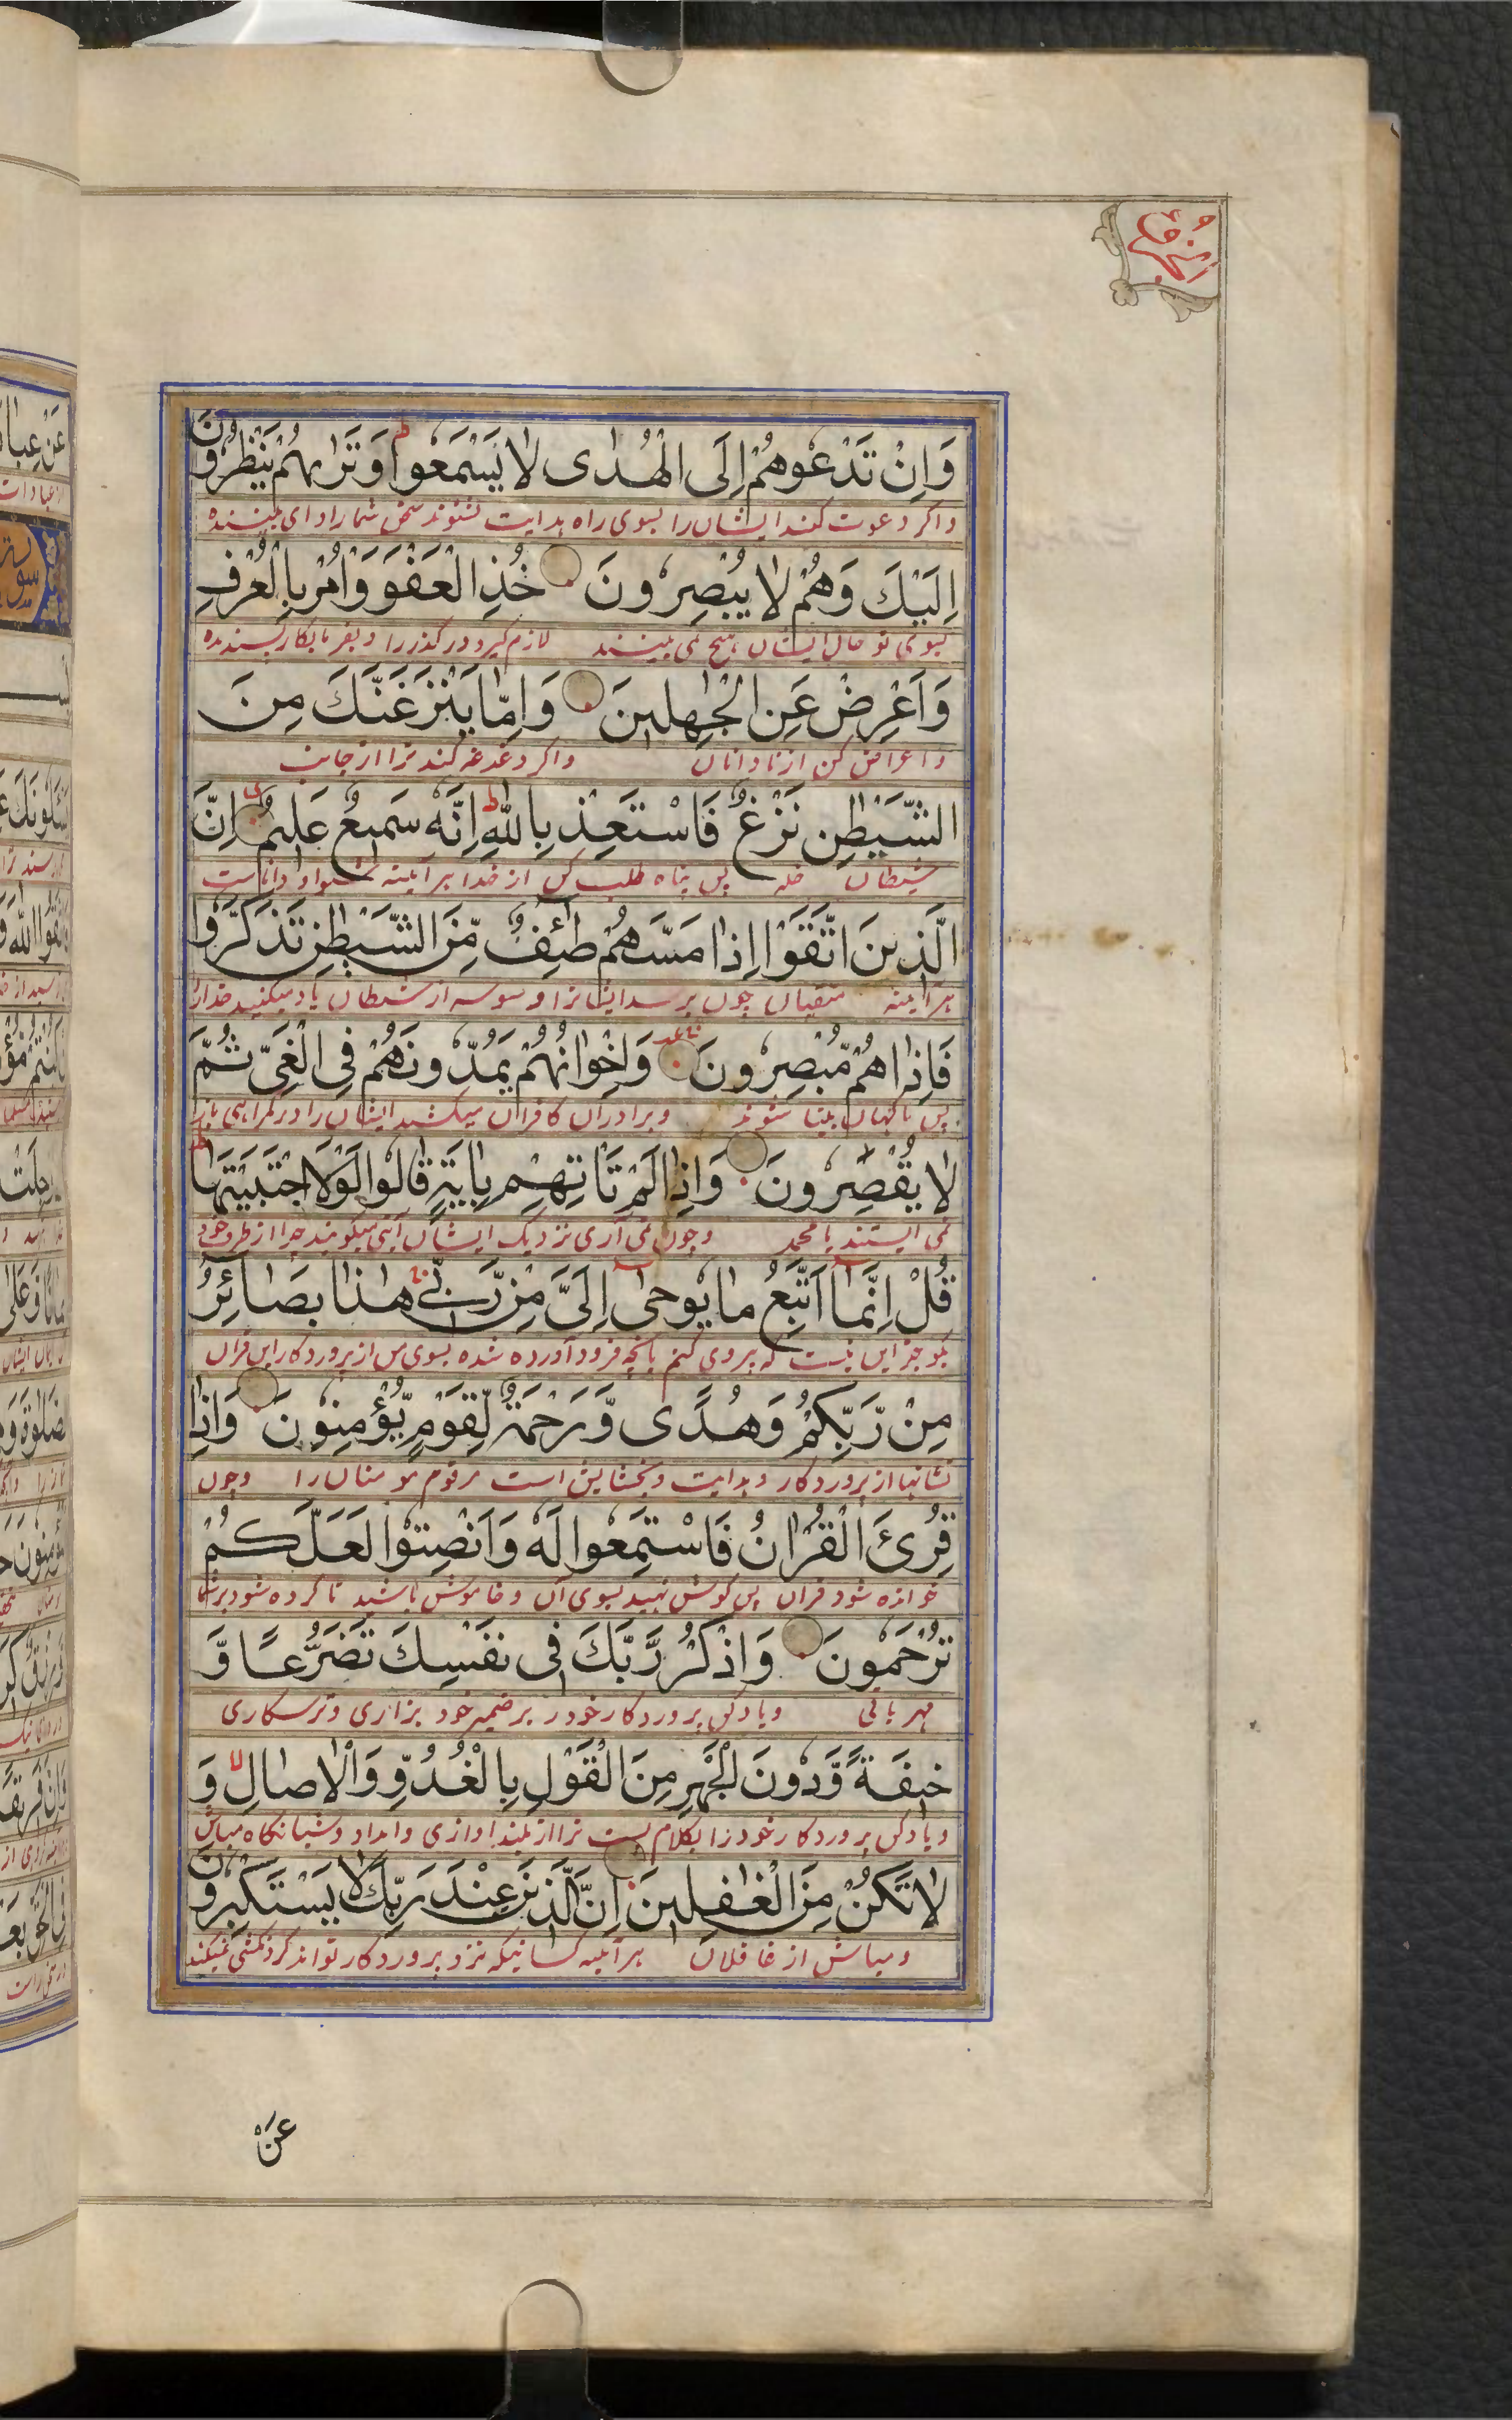 وَاِنْ تَدْعُوهُمْ اِلَى الْهُدٰى لَا يَسْمَعُوا وَتَرٰىهُمْ يَنْظُرُونَ
واكر دعوت كنند ايشان را بسوى راه هدايت نشنوند سخن شما را و اى بيننده
اِلَيْكَ وَهُمْ لَا يُبْصِرُونَ خُذِ الْعَفْوَ وَاْمُرْ بِالْعُرْفِ
بسوى تو حال ايشان هيچ نمى بينند لازم كير و در كذر را و بفرما بكار پسنديده
وَاَعْرِضْ عَنِ الْجٰهِلِينَ وَاِمَّا يَنْزَغَنَّكَ مِنَ
و اعراض كن از نادانان واكر دغدغه كند ترا از جانب
الشَّيْطٰنِ نَزْغٌ فَاسْتَعِذْ بِاللّٰهِ اِنَّهُ سَمِيعٌ عَلِيمٌ اِنَّ
شيطان پس پناه طلب كن از خدا هر آينه شنوا و داناست
الَّذِينَ اتَّقَوْا اِذَا مَسَّهُمْ طٰٓئِفٌ مِّنَ الشَّيْطٰنِ تَذَكَّرُوا
هر آينه متقيان چون برسد ايشانرا وسوسه از شيطان ياد ميكنيد خدا را
فَاِذَا هُمْ مُّبْصِرُونَ وَاِخْوَانُهُمْ يَمُدُّونَهُمْ فِى الْغَىِّ ثُمَّ
پس ناكهان بينا شوند و برادران كافران ميكشند ايشان را در كمراهى باز
لَا يُقْصِرُونَ وَاِذَا لَمْ تَاْتِهِمْ بِاٰيَةٍ قَالُوا لَوْلَا اجْتَبَيْتَهَا
نمى ايستند يا محمد و چون نمى آرى نزديك ايشان آيتى ميكويند چرا از طرف خود
قُلْ اِنَّمَا اَتَّبِعُ مَا يُوحٰى اِلَىَّ مِنْ رَّبِّى هٰذَا بَصَائِرُ
بكو جز اين نيست كه پيروى كنم بانچه فرود آورده شده بسوى من از پروردكار اين قران
مِنْ رَّبِّكُمْ وَهُدًى وَّرَحْمَةٌ لِّقَوْمٍ يُّؤْمِنُونَ وَاِذَا
نشانيها از پروردكار و هدايت و بخشايش است مر قوم مومنان را وچون
قُرِئَ الْقُرْاٰنُ فَاسْتَمِعُوا لَهُ وَاَنْصِتُوا لَعَلَّكُمْ
خوانده شود قران پس كوش نهيد بسوى آن و خاموش باشيد تا كرده شود بر شما
تُرْحَمُونَ وَاذْكُرْ رَّبَّكَ فِى نَفْسِكَ تَضَرُّعًا وَّ
مهربانى و ياد كن پروردكار خود در ضمير خود بزارى و ترسكارى
خِيفَةً وَّدُونَ الْجَهْرِ مِنَ الْقَوْلِ بِالْغُدُوِّ وَالْاٰصَالِ وَ
و ياد كن پروردكار خود را بكلام پست تر از بلند اوازى و امداد و شبانكاه مباش
لَا تَكُنْ مِنَ الْغٰفِلِينَ اِنَّ الَّذِينَ عِنْدَ رَبِّكَ لَا يَسْتَكْبِرُونَ
و مباش از غافلان هر آينه كسانيكه نزد پروردكار تواند كردنكشى نميكنند
عَنْ